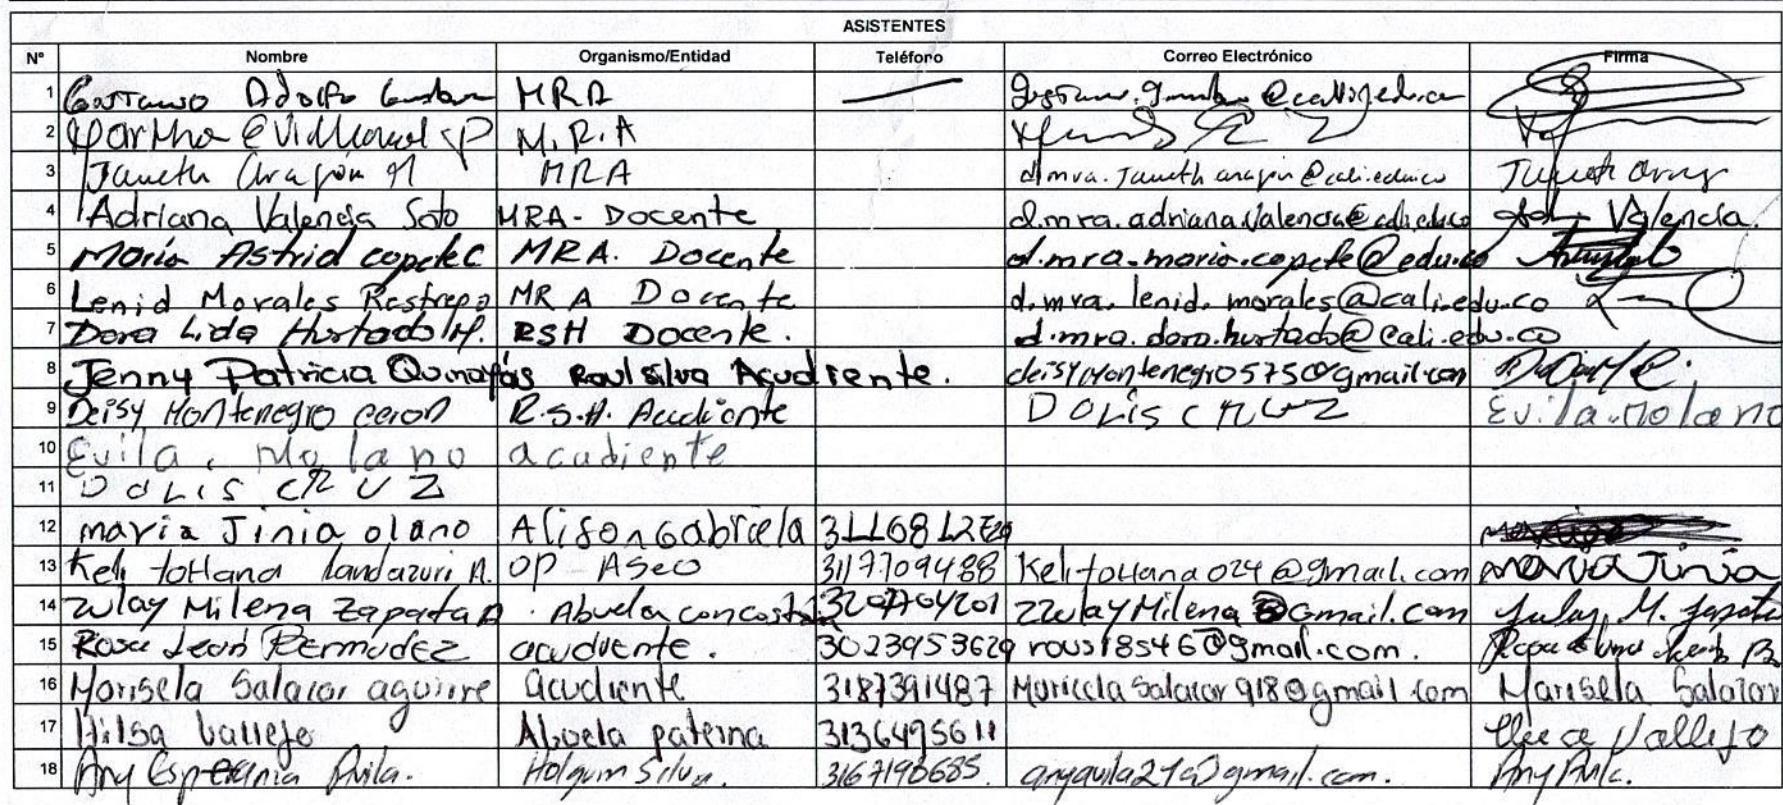 ASISTENTES
N° Nombre Organismo/Entidad Teléfono Correo Electrónico Firma
1 Adolfo MRA
2 M.R.A
3 Janeth Aragón M MRA d.mra.janeth aragin@cali.edu.co Janeth
4 Adriana Valencia Soto MRA- Docente d.mra.adriana.Valencia@cali.edu.co Valencia.
5 Moria Astrid copete C MRA. Docente d.mra.maria.copete@edu.co
6 Lenid Morales Restrepo MR A Docente d.mra. lenid. morales@cali.edu.co
7 Dora Lida Hurtado M. RSH Docente. d.mra.doro.hurtado@cali.edu.co
8 Jenny Patricia Quinayás Raul silva Acudiente. deisymontenegro575@gmail.com
9 Deisy Montenegro ceron R.S.H. Acudiente DOLIS CRUZ Evila.Molano
10 Evila. Molano acudiente
11 DOLIS CRUZ
12 maria Jinia olano Alison Gabriela
13 Keli toHana landazuri A. OP ASeo 3117709488 KelitoHana024@gmail.com maria Jinia
14 Zulay Milena Zapata Abuela con 3207704201 ZZulayMilena@Gmail.com Zulay M. Zapata
15 Rosa León BERmudEZ acudiente. 3023953629 rous18546@gmail.com.
16 Marisela Salazar aguirre acudiente 3187391487 Maricela Salazar918@gmail.com Marisela Salazar
17 Hilsa Vallejo Abuela paterna 3136495611 Vallejo
18 Any Esperania Avila. Holguin Silva. 3167190685 anyavila21@gmail.com. Any Avila.